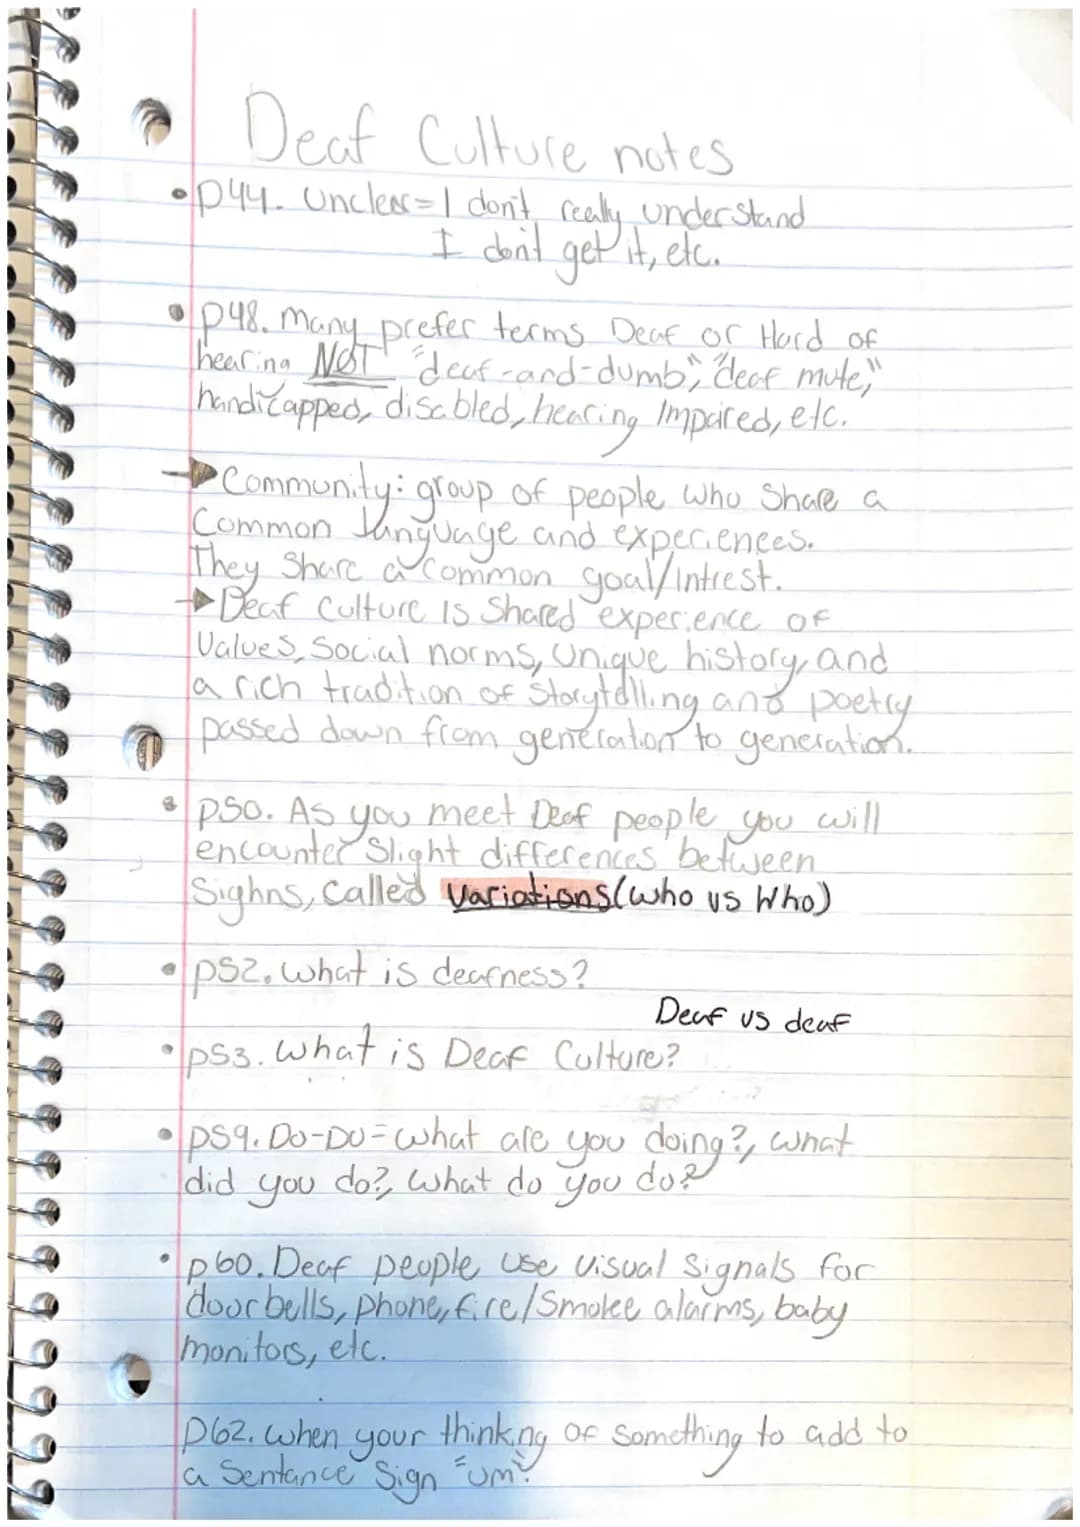 Deaf Culture notes
•p44. Unclear=I don't really understand
I don't get it, etc.
•p48. Many prefer terms Deaf or Hard of
hearing NOT "deaf-and-dumb", "deaf mute,"
handicapped, disabled, hearing Impaired, etc.
→Community: group of people who Share a
Common language and experiences.
They Share a common goal/intrest.
→Deaf Culture is Shared experience of
Values, Social norms, Unique history, and
a rich tradition of Storytelling and poetry
passed down from generation to generation.
•p50. As you meet Deaf people you will
encounter Slight differences between
Sighns, Called Variations(who vs Who)
•p52. What is deafness?
Deaf vs deaf
•p53. What is Deaf Culture?
•p59. Do-Do=What are you doing?, what
did you do?, What do you do?
•p60. Deaf people use Visual Signals for
doorbells, phone, fire/Smoke alarms, baby
monitors, etc.
p62. When your thinking of Something to add to
a Sentance Sign "um".